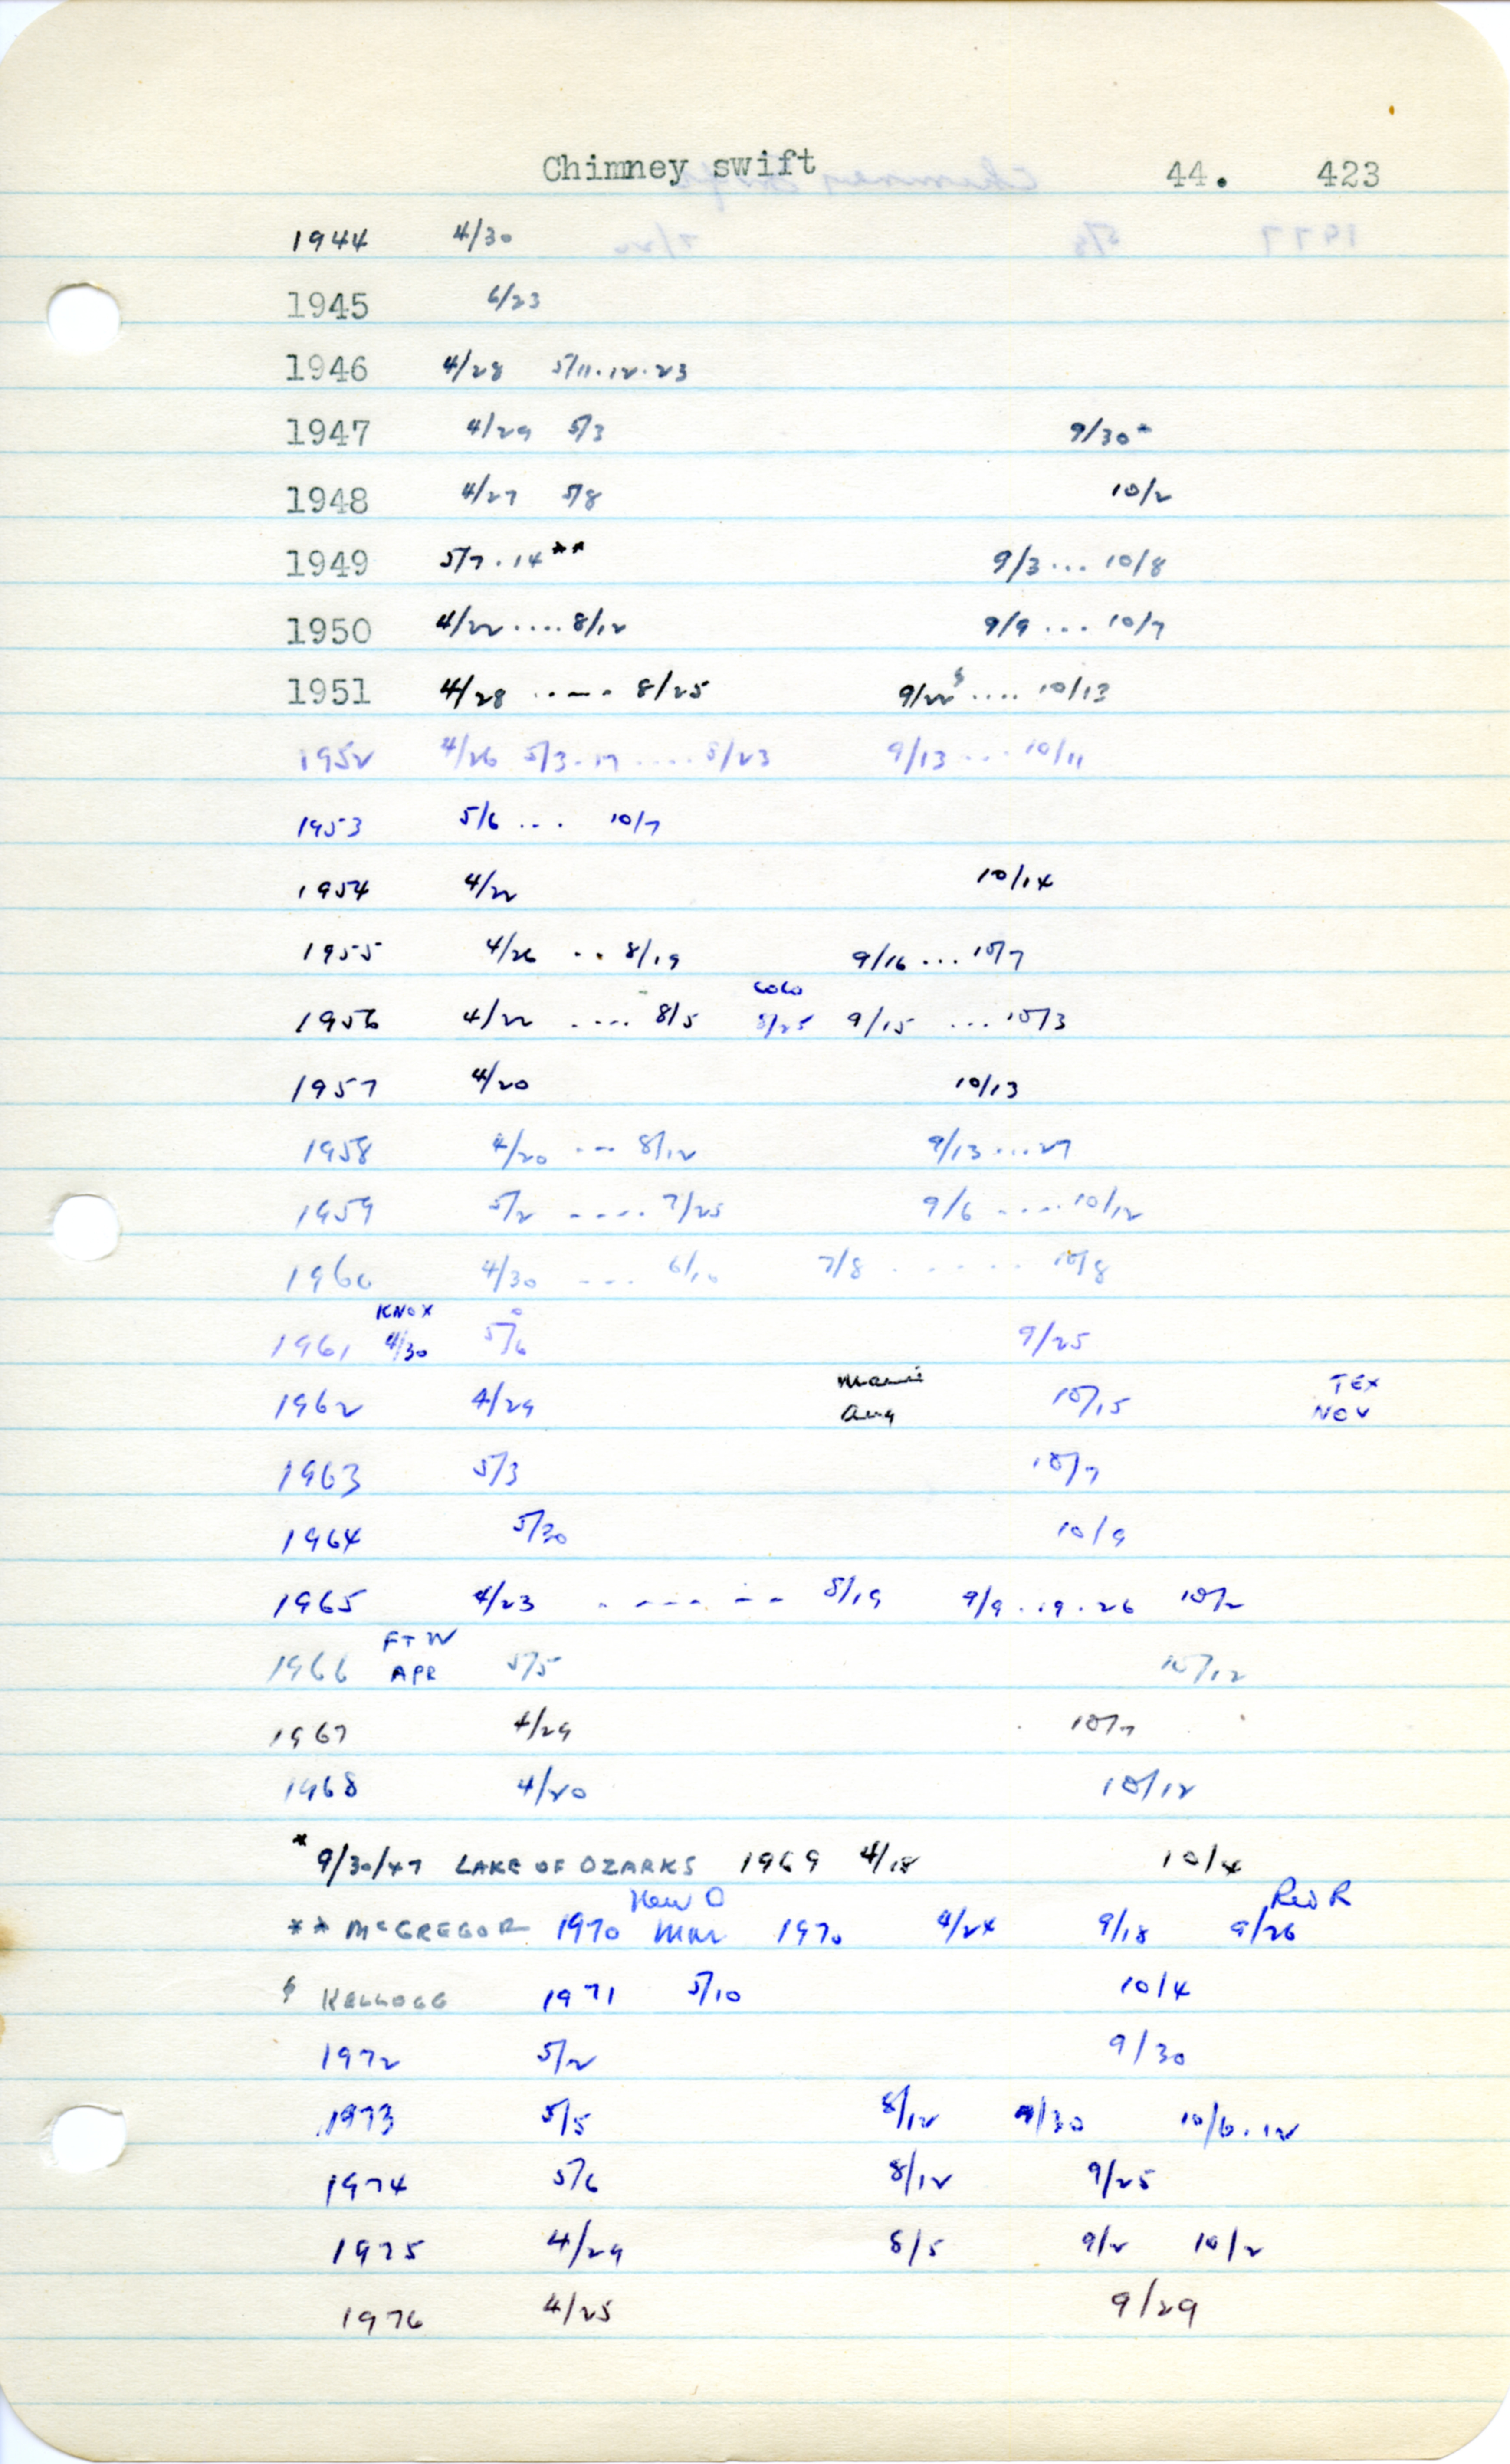 Chimney swift 44. 423
1944 4/30
1945 6/23
1946 4/28 5/11.12.23
1947 4/29 5/3 9/30*
1948 4/27 5/8 10/2
1949 5/7.14** 9/3... 10/8
1950 4/22....8/12 9/9... 10/7
1951 4/28 ..--- 8/25 9/22§.... 10/13
1952 4/26 5/3.17.....8/23 9/13...10/11
1953 5/6 ... 10/7
1954 4/22 10/14
1955 4/26 .. 8/19 9/16...10/7
COLO
1956 4/22 .... 8/5 8/25 9/15 ...10/3
1957 4/20 10/13
1958 4/20 --- 8/12 9/13...27
1959 5/2 ----. 7/25 9/6 ....10/12
1960 4/30 --- 6/10 7/8 ...... 10/8
KNOX
1961 4/30 5/6 9/25
TEX
1962 4/29 Aug 10/15 NOV
1963 5/3 10/7
1964 5/30 10/9
1965 4/23 ------- 8/19 9/9.19.26 10/2
FTW
1966 APR 5/5 10/12
1967 4/29 10/7
1968 4/20 10/12
* 9/30/47 LAKE OF OZARKS 1969 4/18 10/4
New O
** McGREGOR 1970 Mar 1970 4/24 9/18 9/26
§ KELLOGG 1971 5/10 10/4
1972 5/2 9/30
1973 5/5 8/12 9/30 10/6.12
1974 5/6 8/12 9/25
1975 4/29 8/5 9/2 10/2
1976 4/25 9/29